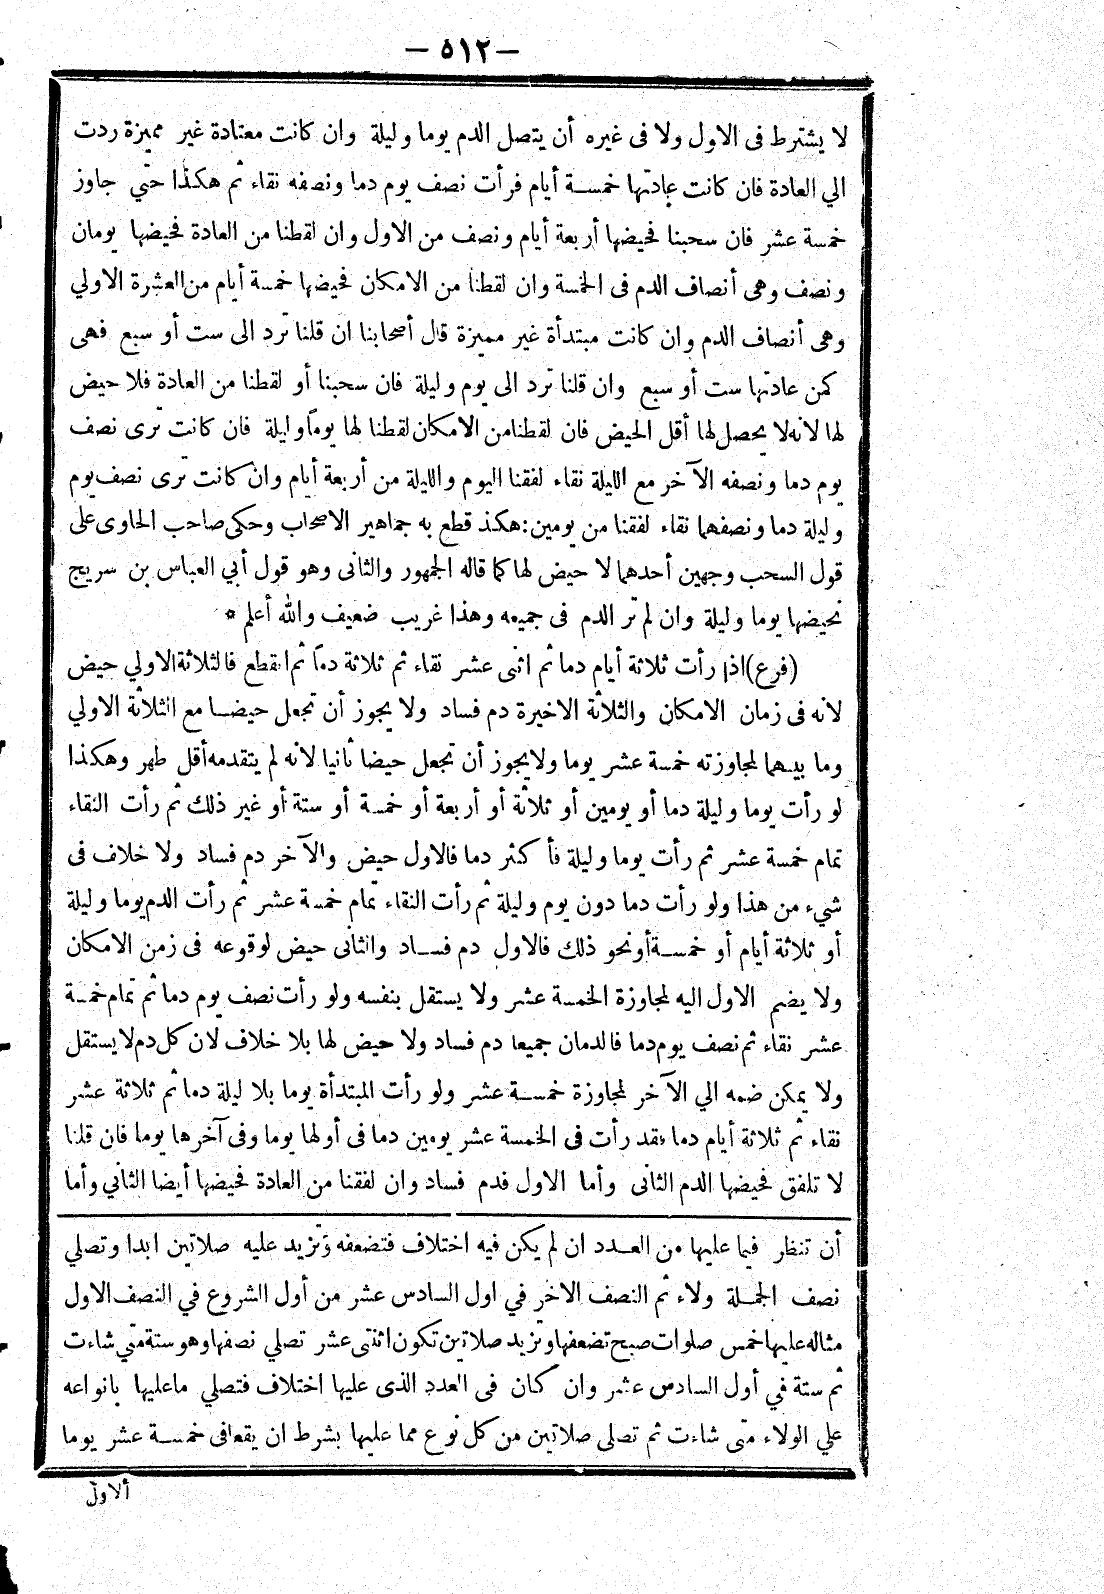 — ٥١٢ —
لا يشترط فى الاول ولا فى غيره أن يتصل الدم يوما وليلة وان كانت معتادة غير مميزة ردت
الي العادة فان كانت عادتها خمسة أيام فرأت نصف يوم دما ونصفه نقاء ثم هكذا حتي جاوز
خمسة عشر فان سحبنا فحيضها أربعة أيام ونصف من الاول وان لقطنا من العادة فحيضها يومان
ونصف وهى أنصاف الدم فى الخمسة وان لقطنا من الامكان فحيضها خمسة أيام من العشرة الاولي
وهى أنصاف الدم وان كانت مبتدأة غير مميزة قال أصحابنا ان قلنا ترد الى ست أو سبع فهى
كمن عادتها ست أو سبع وان قلنا ترد الى يوم وليلة فان سحبنا أو لقطنا من العادة فلا حيض
لها لانه لا يحصل لها أقل الحيض فان لقطنا من الامكان لقطنا لها يوماً وليلة فان كانت ترى نصف
يوم دما ونصفه الآخر مع الليلة نقاء لفقنا اليوم والليلة من أربعة أيام وان كانت ترى نصف يوم
وليلة دما ونصفهما نقاء لفقنا من يومين: هكذ قطع به جماهير الاصحاب وحكى صاحب الحاوى على
قول السحب وجهين أحدهما لا حيض لها كما قاله الجمهور والثانى وهو قول أبي العباس بن سريج
نحيضها يوما وليلة وان لم تر الدم فى جميعه وهذا غريب ضعيف والله أعلم *
(فرع) اذا رأت ثلاثة أيام دما ثم اثنى عشر نقاء ثم ثلاثة دمًا ثم انقطع فالثلاثة الاولي حيض
لانه فى زمان الامكان والثلاثة الاخيرة دم فساد ولا يجوز أن تجعل حيضا مع الثلاثة الاولي
وما بينهما لمجاوزته خمسة عشر يوما ولا يجوز أن تجعل حيضا ثانيا لانه لم يتقدمه أقل طهر وهكذا
لو رأت يوما وليلة دما أو يومين أو ثلاثة أو أربعة أو خمسة أو ستة أو غير ذلك ثم رأت النقاء
تمام خمسة عشر ثم رأت يوما وليلة فأكثر دما فالاول حيض والآخر دم فساد ولا خلاف فى
شيء من هذا ولو رأت دما دون يوم وليلة ثم رأت النقاء تمام خمسة عشر ثم رأت الدم يوما وليلة
أو ثلاثة أيام أو خمسة أو نحو ذلك فالاول دم فساد والثانى حيض لوقوعه فى زمن الامكان
ولا يضم الاول اليه لمجاوزة الخمسة عشر ولا يستقل بنفسه ولو رأت نصف يوم دما ثم تمام خمسة
عشر نقاء ثم نصف يوم دما فالدمان جميعا دم فساد ولا حيض لها بلا خلاف لان كل دم لا يستقل
ولا يمكن ضمه الي الآخر لمجاوزة خمسة عشر ولو رأت المبتدأة يوما بلا ليلة دما ثم ثلاثة عشر
نقاء ثم ثلاثة أيام دما فقد رأت فى الخمسة عشر يومين دما فى أولها يوما وفى آخرها يوما فان قلنا
لا تلفق فحيضها الدم الثانى وأما الاول فدم فساد وان لفقنا من العادة فحيضها أيضا الثاني وأما
أن تنظر فيما عليها من العدد ان لم يكن فيه اختلاف فتضعفه وتزيد عليه صلاتين ابدا وتصلي
نصف الجملة ولاء ثم النصف الاخر في اول السادس عشر من أول الشروع في النصف الاول
مثاله عليها خمس صلوات صبح تضعفها وتزيد صلاتين تكون اثنتى عشر تصلي نصفها وهو ستة متي شاءت
ثم ستة في أول السادس عشر وان كان فى العدد الذى عليها اختلاف فتصلي ما عليها بانواعه
علي الولاء متى شاءت ثم تصلى صلاتين من كل نوع مما عليها بشرط ان يقعا فى خمسة عشر يوما
ألاول